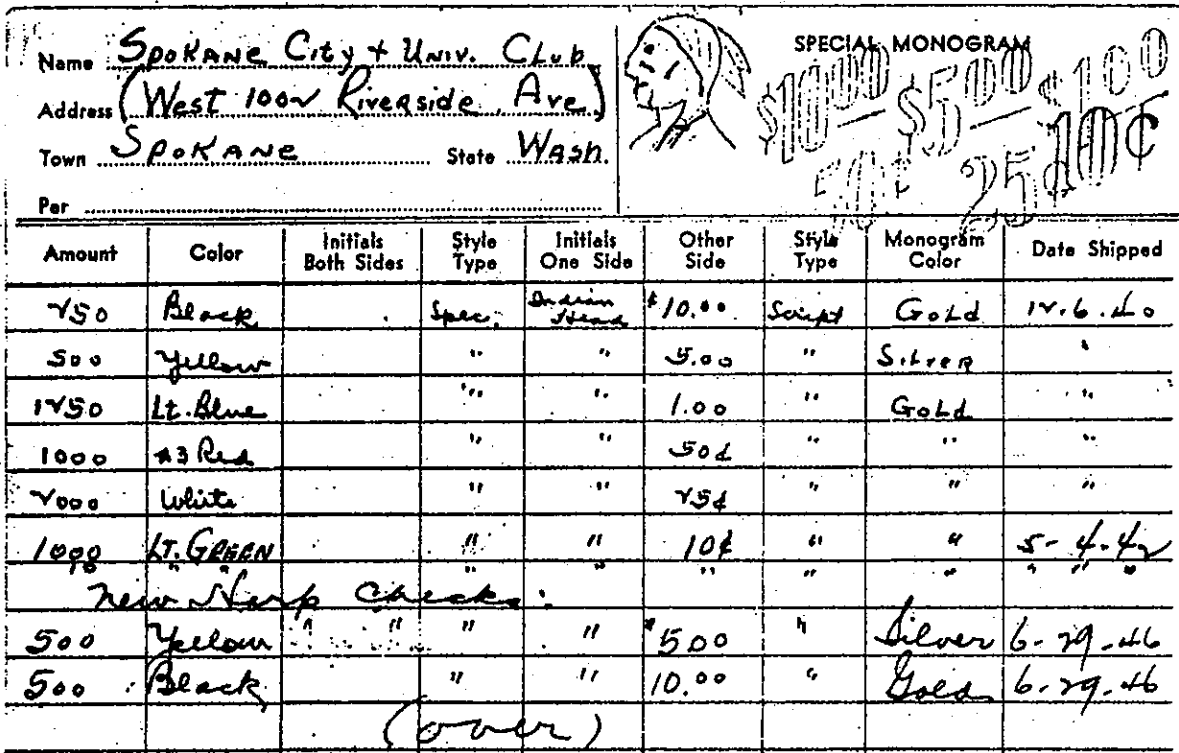 Name Spokane City + Univ. Club
Address (West 1002 Riverside Ave.)
Town Spokane State Wash.
Per
SPECIAL MONOGRAM
$10.00 $5.00 $1.00
50¢ 25¢ 10¢
Amount Color Initials Both Sides Style Type Initials One Side Other Side Style Type Monogram Color Date Shipped
250 Black Spec. Indian Head $10.00 Script Gold 12.6.40
500 Yellow " " 5.00 " Silver "
1250 Lt. Blue " " 1.00 " Gold "
1000 #3 Red " " 50¢ " " "
2000 White " " 25¢ " " "
1000 LT. GREEN " " 10¢ " " 5-4-42
" " " " " " " " " "
New Harp Checks:
500 Yellow " " " " $5.00 " Silver 6-29-46
500 Black " " 10.00 " Gold 6-29-46
(over)